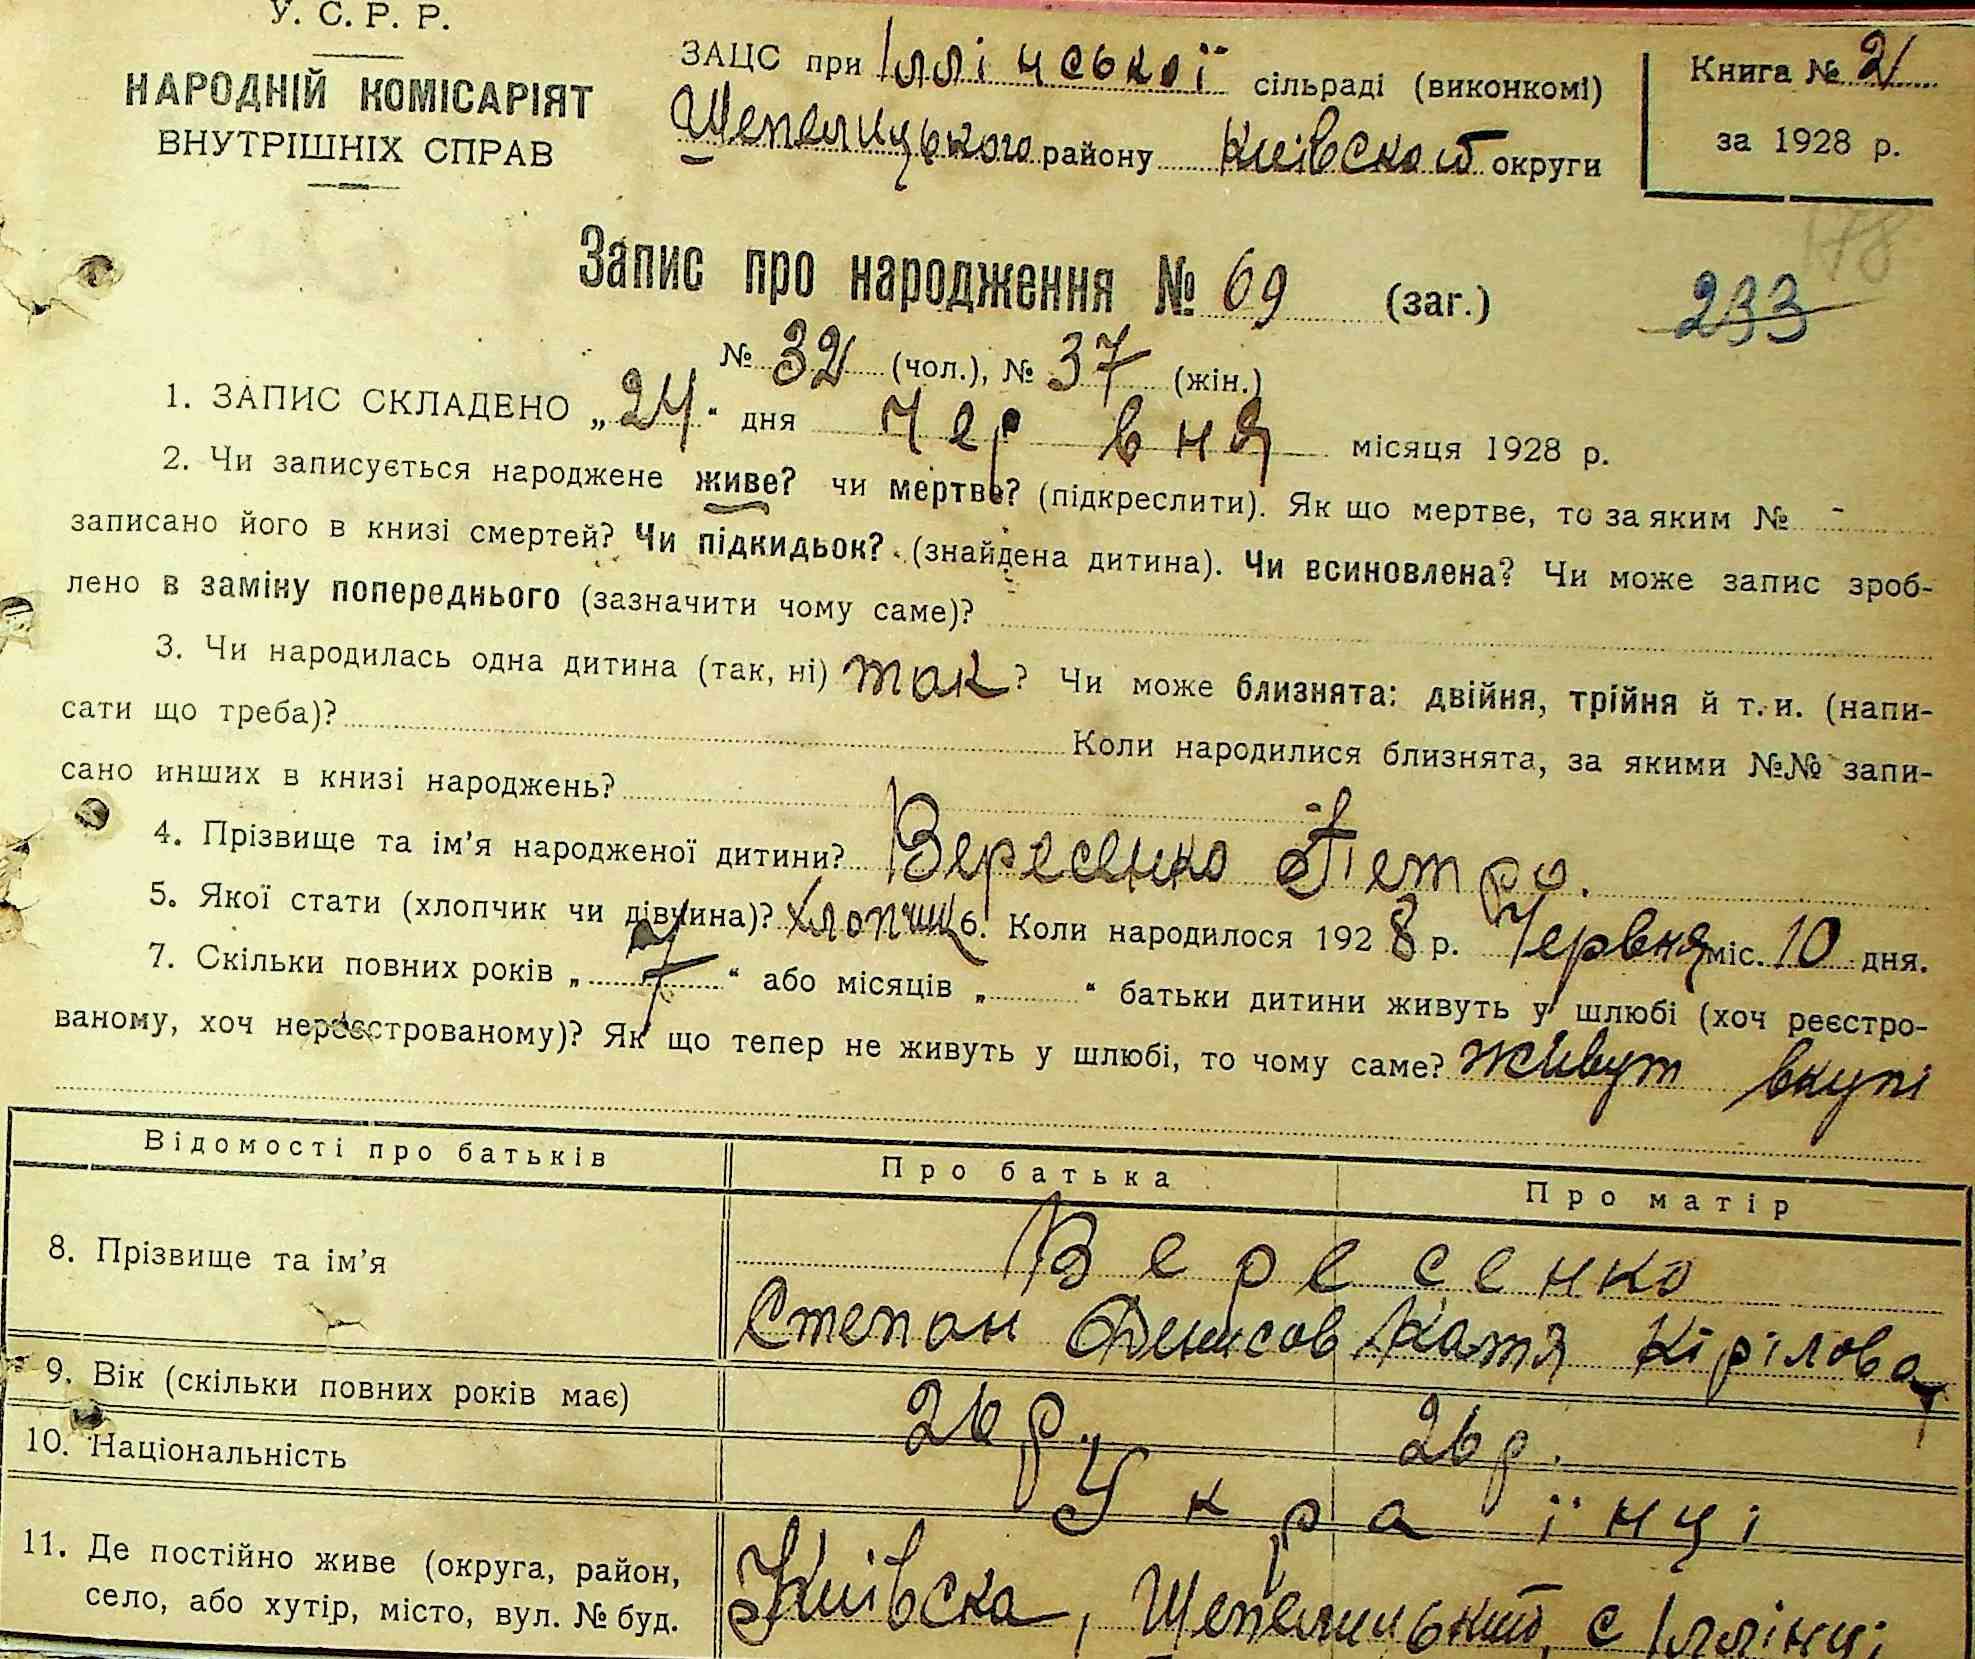 У. С. Р. Р.
НАРОДНІЙ КОМІСАРІЯТ
ВНУТРІШНІХ СПРАВ
ЗАЦС при Іллічської сільраді (виконкомі)
Шепелицького району Київской округи
Книга № 2
за 1928 р.
178
233
Запис про народження № 69 (заг.)
№ 32 (чол.), № 37 (жін.)
1. ЗАПИС СКЛАДЕНО „24“ дня Червня місяця 1928 р.
2. Чи записується народжене живе? чи мертве? (підкреслити). Як що мертве, то за яким № -
записано його в книзі смертей? Чи підкидьок? (знайдена дитина). Чи всиновлена? Чи може запис зроб-
лено в заміну попереднього (зазначити чому саме)?
3. Чи народилась одна дитина (так, ні) так? Чи може близнята: двійня, трійня й т. и. (напи-
сати що треба)? Коли народилися близнята, за якими №№ запи-
сано инших в книзі народжень?
4. Прізвище та ім'я народженої дитини? Вересенко Петро.
5. Якої стати (хлопчик чи дівчина)? хлопчик 6. Коли народилося 1928 р. Червня міс. 10 дня.
7. Скільки повних років „7“ або місяців „ “ батьки дитини живуть у шлюбі (хоч реєстро-
ваному, хоч нереєстрованому)? Як що тепер не живуть у шлюбі, то чому саме? живут вкупі
Відомості про батьків Про батька Про матір
8. Прізвище та ім'я Вересенко
Степан Денисов Катя Кірілова
9. Вік (скільки повних років має) 26 р. 26 р.
10. Національність Українці
11. Де постійно живе (округа, район, Київска, Шепелицький, с Іллінці
село, або хутір, місто, вул. № буд.